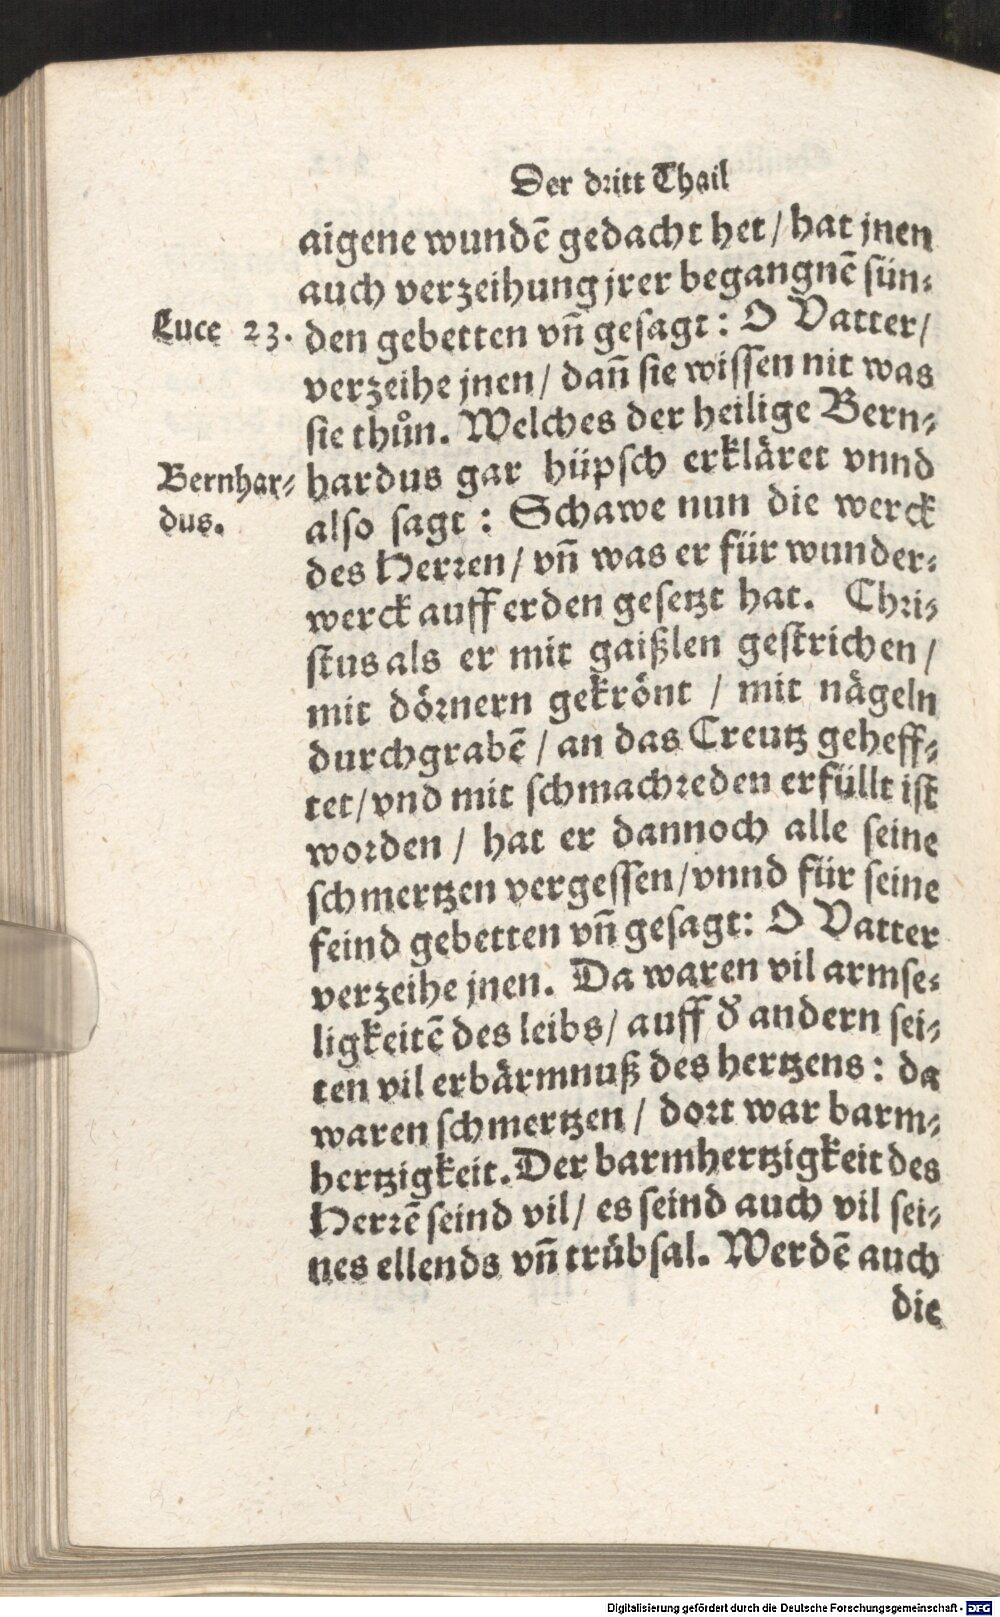 Der dritt Thail
aigene wundē gedacht het / hat jnen
auch verzeihung jrer begangnē sün⸗
Luce 23.
den gebetten vn̄ gesagt : O Vatter /
verzeihe jnen / dan̄ sie wissen nit was
sie thůn. Welches der heilige Bern⸗
Bernhar⸗
dus.
hardus gar hüpsch erkläret vnnd
also sagt : Schawe nun die werck
des Herren / vn̄ was er für wunder⸗
werck auff erden gesetzt hat. Chri⸗
stus als er mit gaißlen gestrichen /
mit dörnern gekrönt / mit nägeln
durchgrabē / an das Creutz geheff⸗
tet / vnd mit schmachreden erfüllt ist
worden / hat er dannoch alle seine
schmertzen vergessen / vnnd für seine
feind gebetten vn̄ gesagt: O Vatter
verzeihe jnen. Da waren vil armse⸗
ligkeitē des leibs / auff d̕ andern sei⸗
ten vil erbärmnuß des hertzens : da
waren schmertzen / dort war barm⸗
hertzigkeit. Der barmhertzigkeit des
Herrē seind vil / es seind auch vil sei⸗
nes ellends vn̄ trübsal. Werdē auch
die
Digitalisierung gefördert durch die Deutsche Forschungsgemeinschaft - DFG